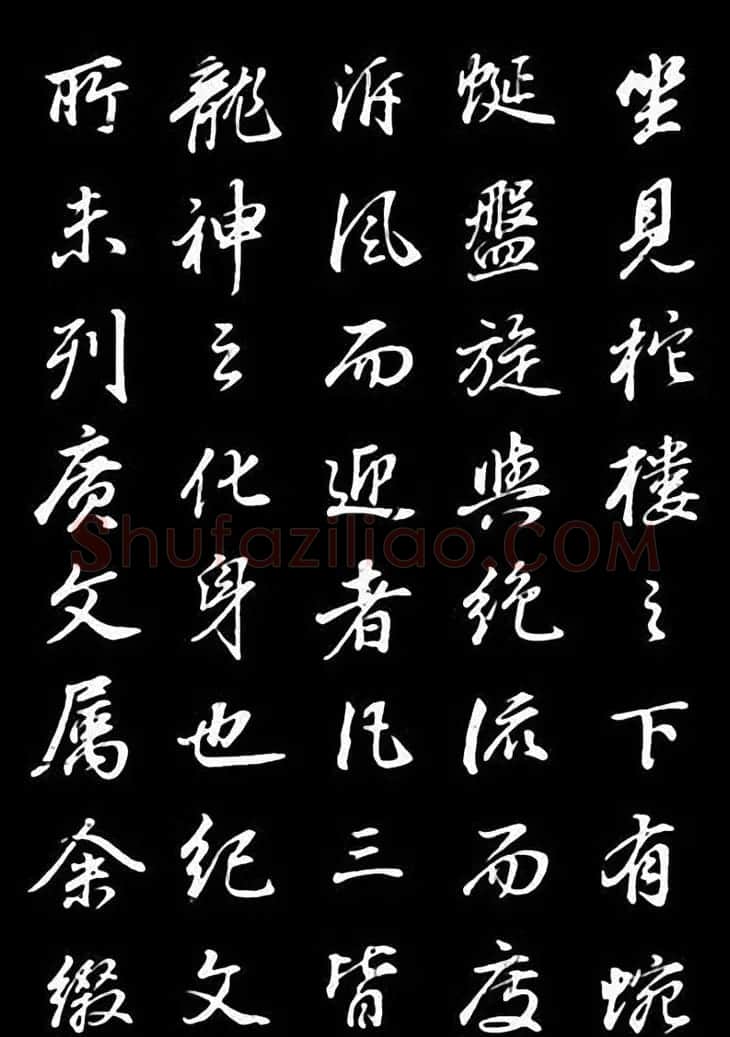 坐見柁樓之下有蜿
蜒盤旋與絶流而度
泝風而迎者凡三皆
龍神之化身也紀文
所未列廣文属余綴
Shufaziliao.COM